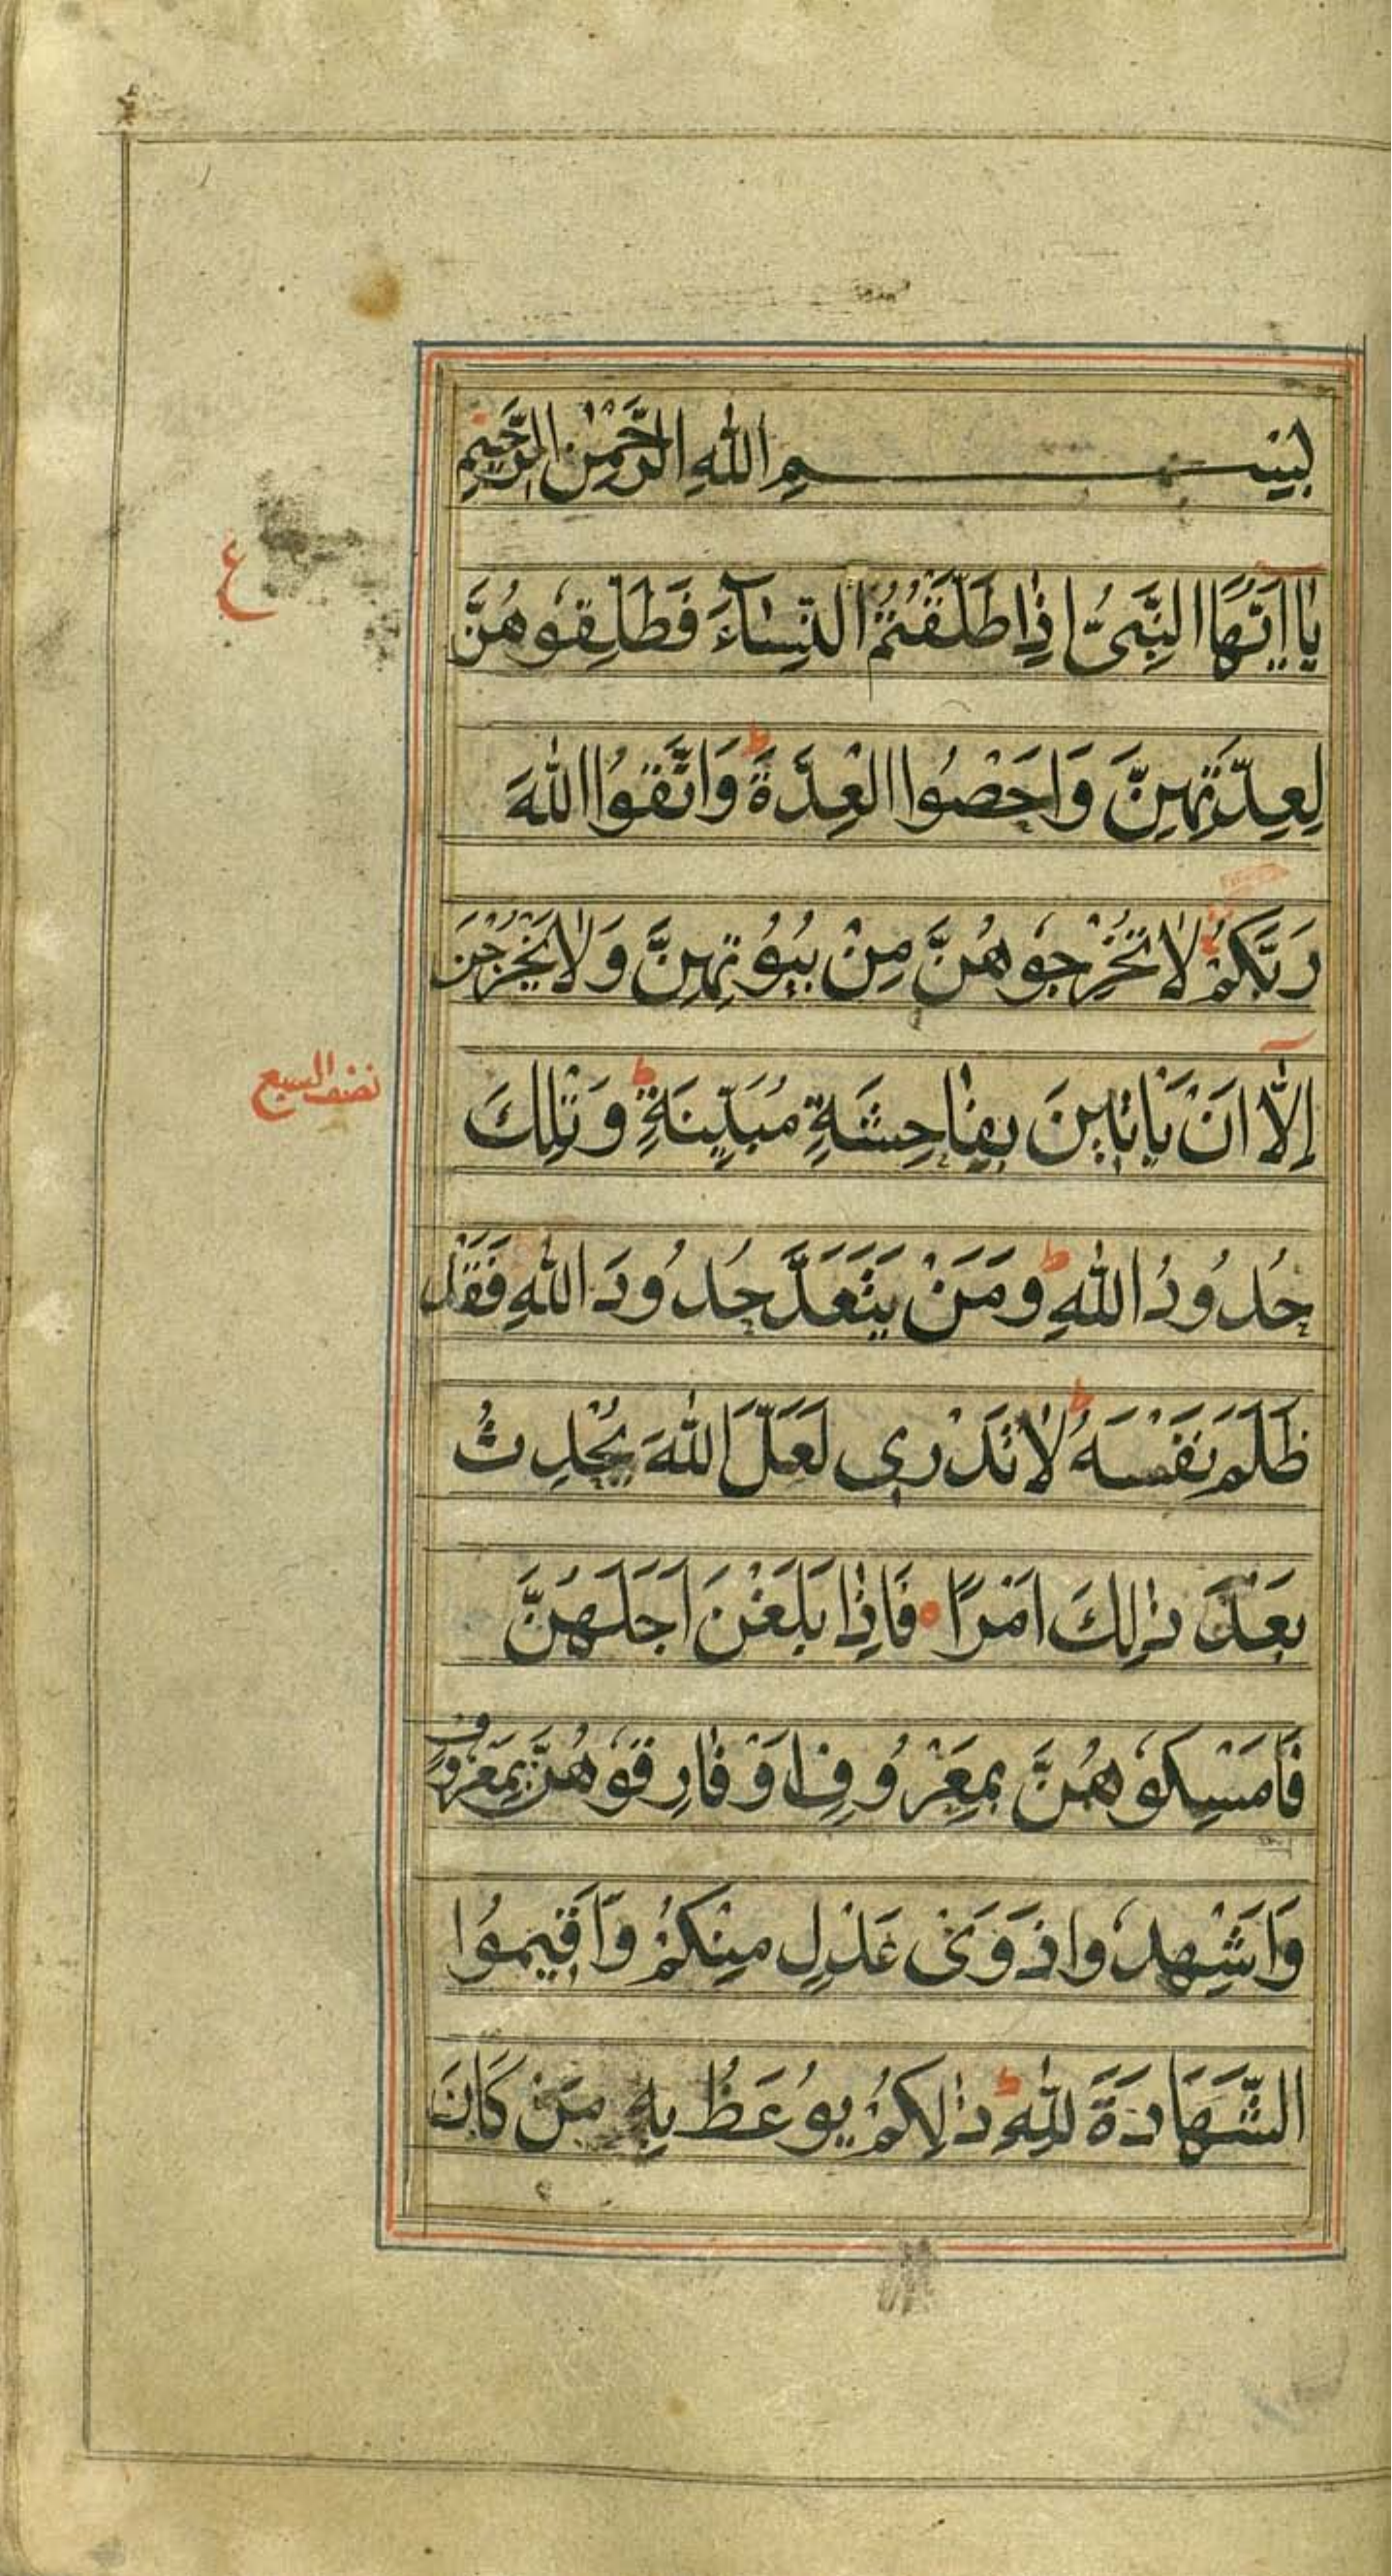 بِسْمِ اللّٰهِ الرَّحْمٰنِ الرَّحِيْمِ
يٰااَيُّهَا النَّبِىُّ اِذٰا طَلَّقْتُمُ النِّسٰآءَ فَطَلِّقُوهُنَّ
ع
لِعِدَّتِهِنَّ وَاَحْصُوا الْعِدَّةَ ط وَاتَّقُوا اللّٰهَ
رَبَّكُمْ لٰا تُخْرِجُوهُنَّ مِنْ بُيُوتِهِنَّ وَلٰا يَخْرُجْنَ
اِلّٰٓا اَنْ يَاْتٖينَ بِفٰاحِشَةٍ مُبَيِّنَةٍ ط وَتِلْكَ
نصف السبع
حُدُودُ اللّٰهِ ط وَمَنْ يَتَعَدَّ حُدُودَ اللّٰهِ فَقَدْ
ظَلَمَ نَفْسَهُ ط لٰا تَدْرٖى لَعَلَّ اللّٰهَ يُحْدِثُ
بَعْدَ ذٰلِكَ اَمْرًا فَاِذٰا بَلَغْنَ اَجَلَهُنَّ
فَاَمْسِكُوهُنَّ بِمَعْرُوفٍ اَوْ فٰارِقُوهُنَّ بِمَعْرُوفٍ
وَاَشْهِدُوا ذَوَىْ عَدْلٍ مِنْكُمْ وَاَقٖيمُوا
الشَّهَادَةَ لِلّٰهِ ط ذٰلِكُمْ يُوعَظُ بِهٖ مَنْ كَانَ